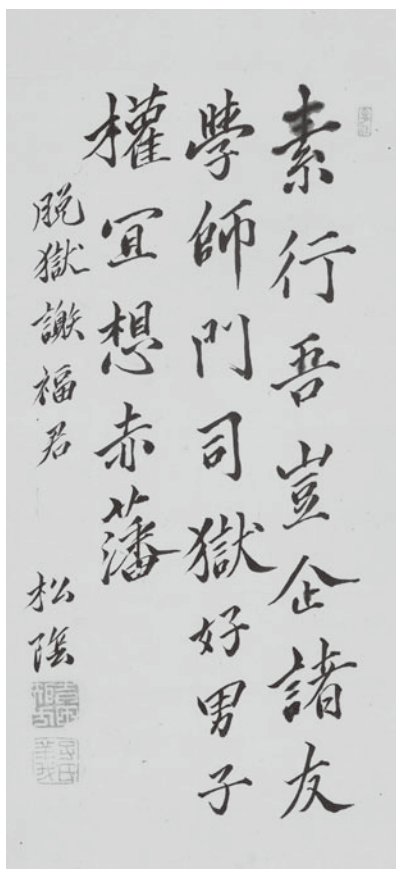 素行吾豈企諸友
學師門司獄好男子
權宜想赤藩
脱獄謝福君
松陰